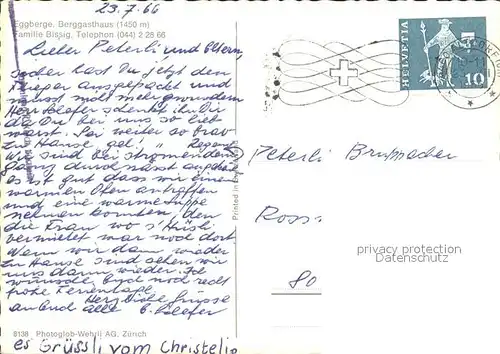 23.7.66
Eggberge. Berggasthaus (1450 m)
Familie Bissig, Telephon (044) 2 28 66
Lieber Peterli, und Eltern,
sicher hast Du jetzt den
Flieger ausgepackt und
musst nicht mehr
Herr denkt Dir
da Du bei uns so lieb
warst. Sei weiter so brav
zu Hause gel! Regen
Wir sind bei strömendem
ganz durch nass
es ist gut dass wir einen
warmen Ofen antraffen
und eine warme Suppe
nehmen konnten, den
die Frau wo s'Hüsli
vermietet war noch dort.
Wenn wir dann wieder
zu Hause sind sehen wir
uns dann wieder. Ich
wünsche Euch noch recht
frohe Ferientage.
Herzliche Grüsse
an Euch alle
8138 Photoglob-Wehrli AG, Zürich
es Grüssli vom Christeli
Printed in
HELVETIA
10
Peterli
Ross
80
privacy protection
Datenschutz